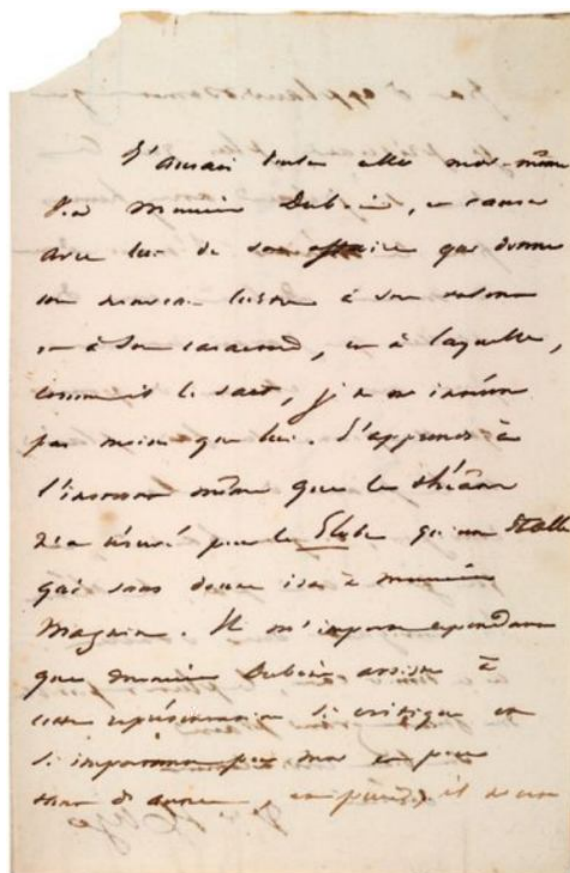 J'aurais voulu aller moi-même
voir Monsieur Dubois, et causer
avec lui de son affaire qui donne
un nouveau lustre à son talent
et à son caractère, et à laquelle,
comme il le sait, je ne m'intéresse
pas moins que lui. J'apprends à
l'instant même que le théâtre
n'a réservé pour le Globe qu'une stalle
qui sans doute ira à Monsieur
Magnin. Il m'importe cependant
que Monsieur Dubois assiste à
cette représentation si critique et
si importante pour moi et pour
tant d'autres,